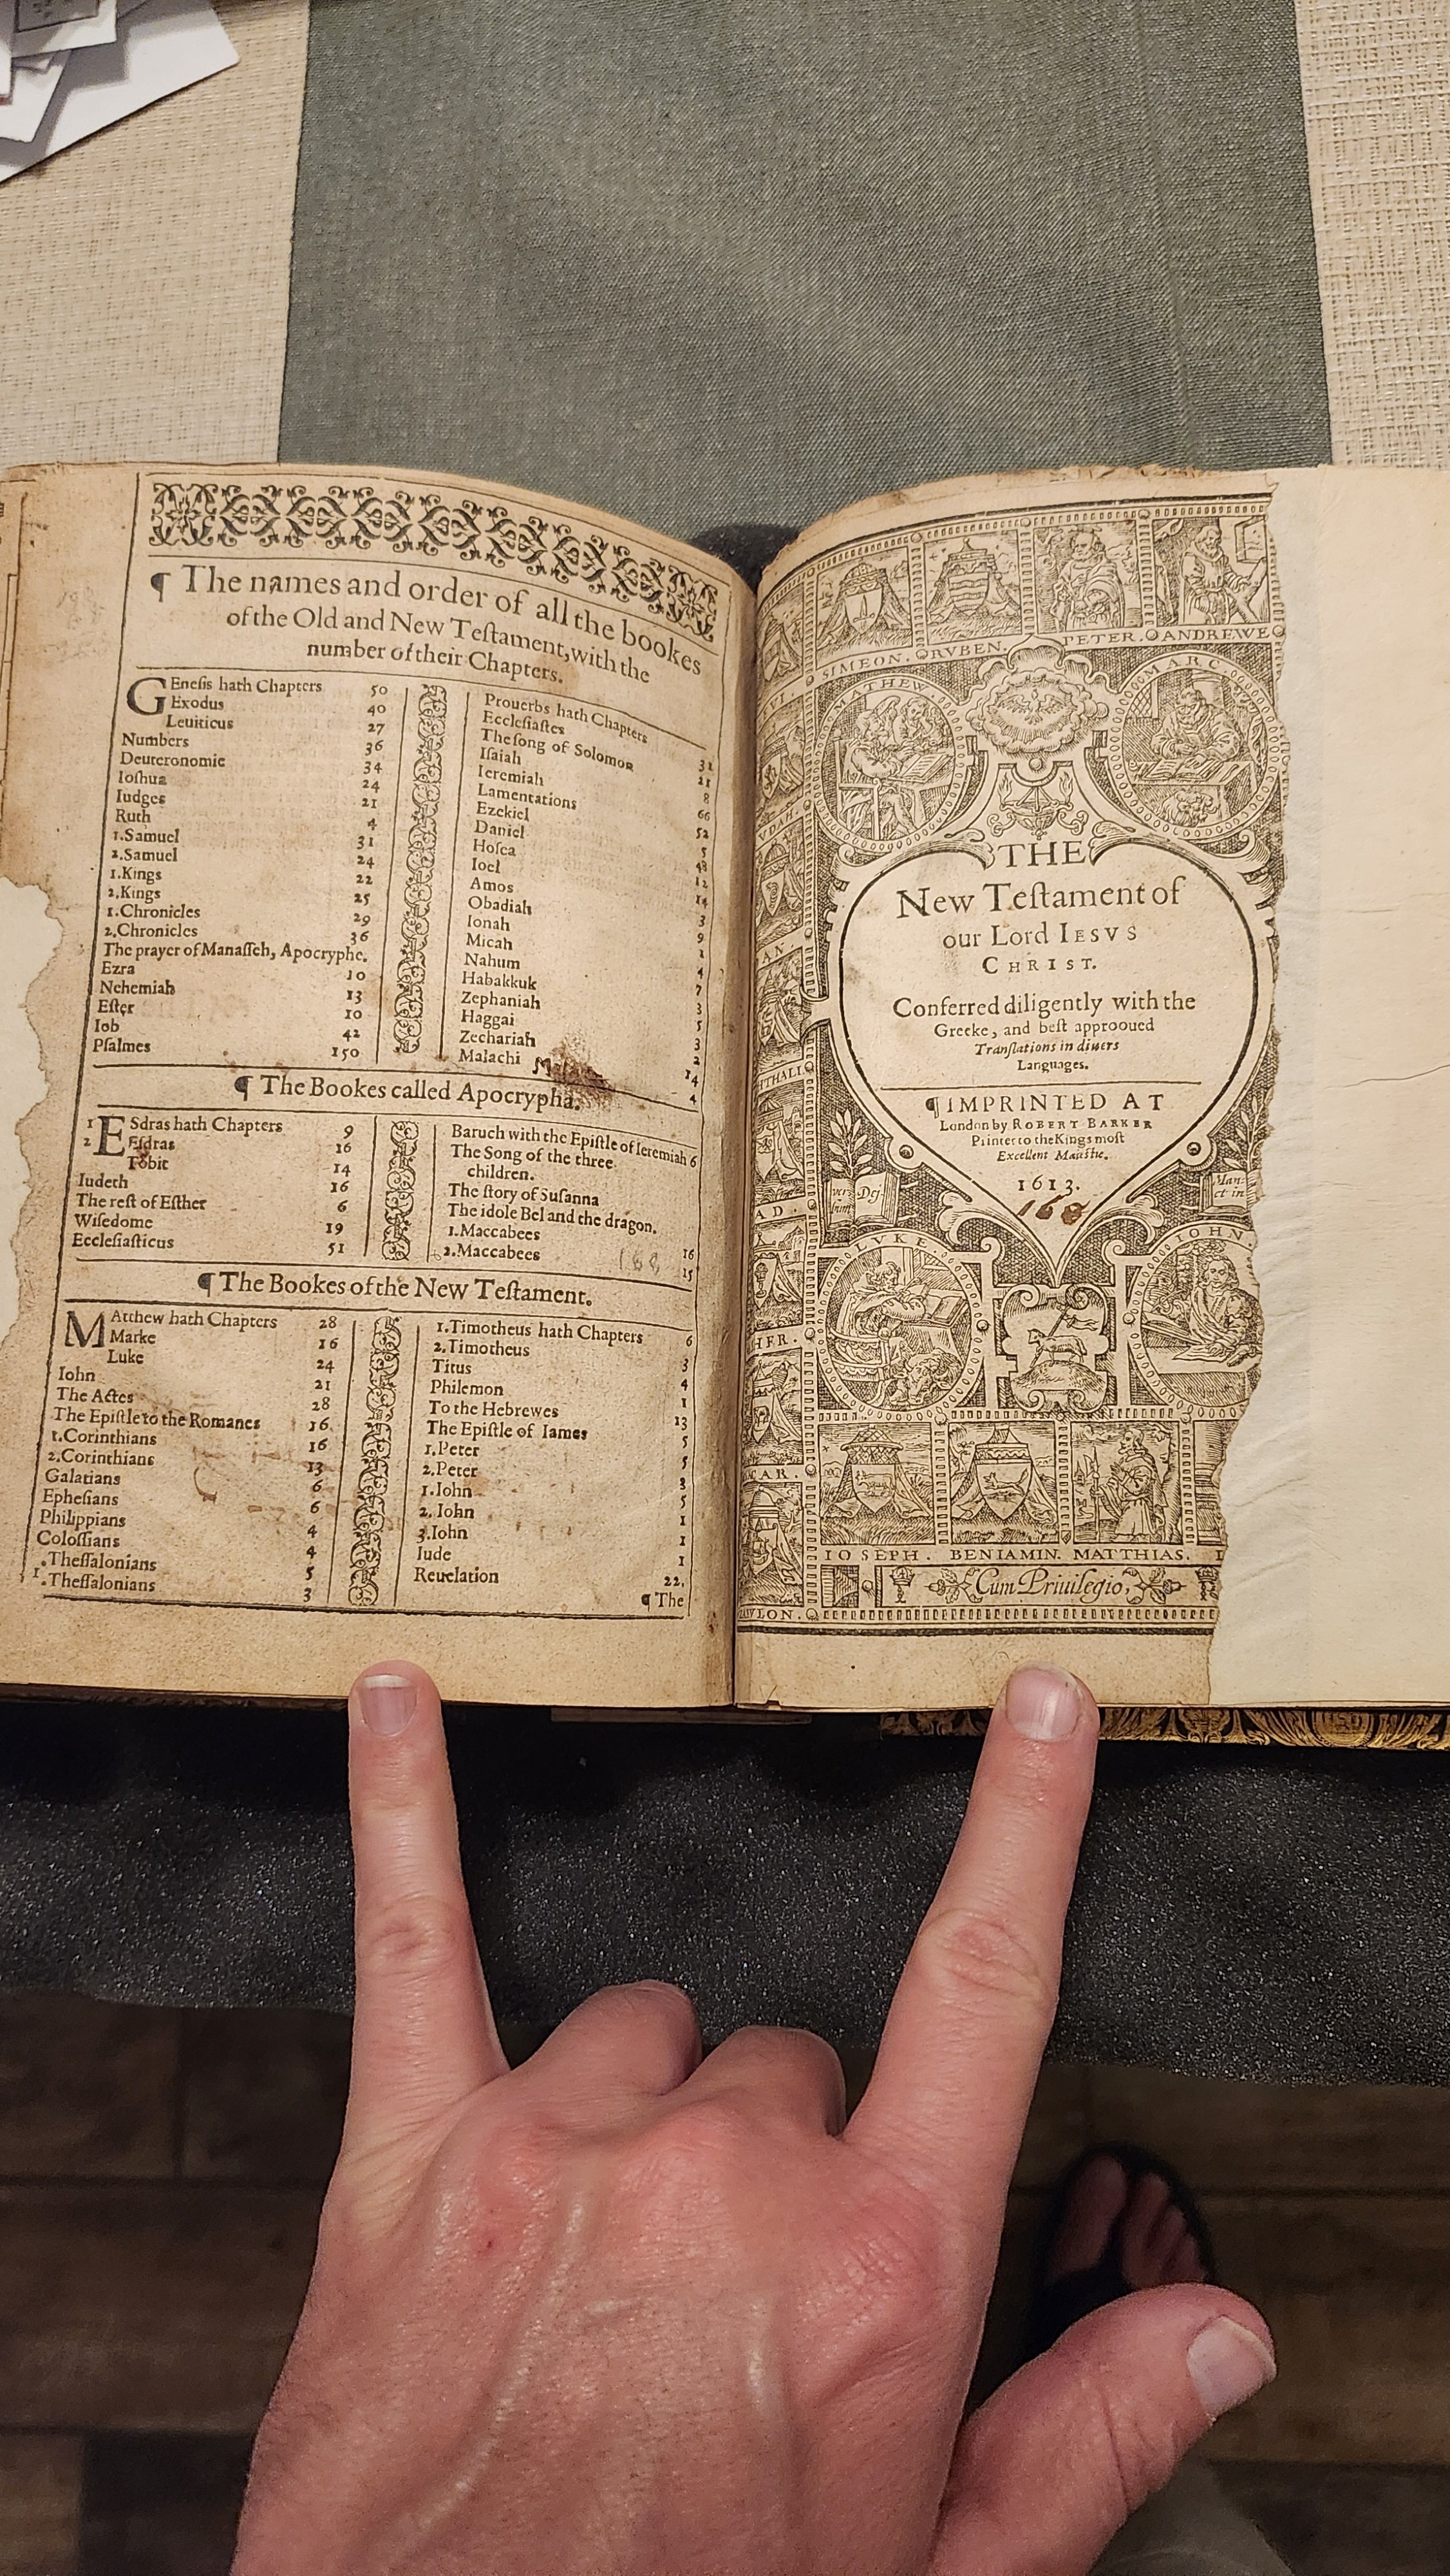 ¶ The names and order of all the bookes
of the Old and New Teſtament, with the
number of their Chapters.
GEneſis hath Chapters 50
Exodus 40
Leuiticus 27
Numbers 36
Deuteronomie 34
Ioſhua 24
Iudges 21
Ruth 4
1.Samuel 31
2.Samuel 24
1.Kings 22
2.Kings 25
1.Chronicles 29
2.Chronicles 36
The prayer of Manaſſeh, Apocryphe.
Ezra 10
Nehemiah 13
Eſter 10
Iob 42
Pſalmes 150
Prouerbs hath Chapters 31
Eccleſiaſtes 21
The ſong of Solomon 8
Iſaiah 66
Ieremiah 52
Lamentations 5
Ezekiel 48
Daniel 12
Hoſea 14
Ioel 3
Amos 9
Obadiah 1
Ionah 4
Micah 7
Nahum 3
Habakkuk 3
Zephaniah 3
Haggai 2
Zechariah 14
Malachi 4
¶ The Bookes called Apocrypha.
1 ESdras hath Chapters 9
2 Eſdras 16
Tobit 14
Iudeth 16
The reſt of Eſther 6
Wiſedome 19
Eccleſiaſticus 51
Baruch with the Epiſtle of Ieremiah 6
The Song of the three
children.
The ſtory of Suſanna
The idole Bel and the dragon.
1.Maccabees 16
2.Maccabees 15
168
¶ The Bookes of the New Teſtament.
MAtthew hath Chapters 28
Marke 16
Luke 24
Iohn 21
The Actes 28
The Epiſtle to the Romanes 16
1.Corinthians 16
2.Corinthians 13
Galatians 6
Epheſians 6
Philippians 4
Coloſſians 4
1.Theſſalonians 5
2.Theſſalonians 3
1.Timotheus hath Chapters 6
2.Timotheus 3
Titus 4
Philemon 1
To the Hebrewes 13
The Epiſtle of Iames 5
1.Peter 5
2.Peter 3
1.Iohn 5
2.Iohn 1
3.Iohn 1
Iude 1
Reuelation 22.
¶ The
SIMEON. RVBEN. PETER. ANDREWE
MATHEW. MARC.
THE
New Teſtament of
our Lord IESVS
CHRIST.
Conferred diligently with the
Greeke, and beſt approoued
Tranſlations in diuers
Languages.
¶ IMPRINTED AT
London by ROBERT BARKER
Printer to the Kings moſt
Excellent Maieſtie.
1613.
LVKE. IOHN.
IOSEPH. BENIAMIN. MATTHIAS.
Cum Priuilegio,